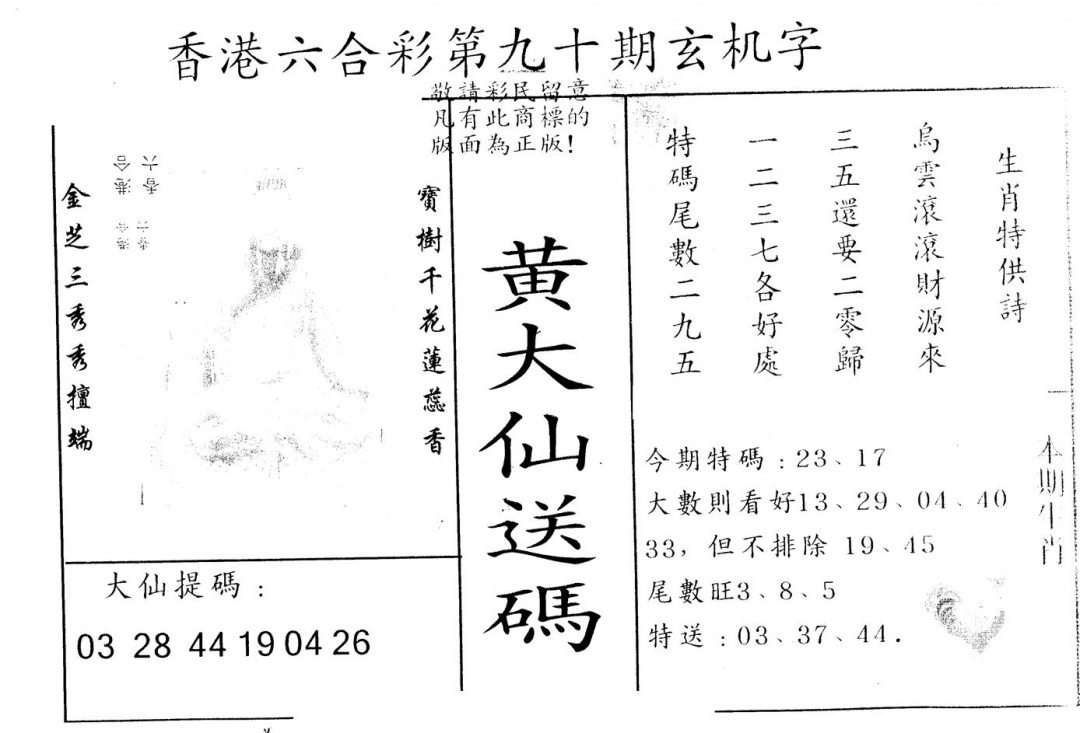 香港六合彩第九十期玄机字
敬請彩民留意
凡有此商標的
版面為正版!
生肖特供詩
烏雲滾滾財源來
三五還要二零歸
一二三七各好處
特碼尾數二九五
黄大仙送碼
寶樹千花蓮蕊香
金芝三秀秀擅端
香六
港合
香六
港合
今期特碼:23、17
大數則看好13、29、04、40
33,但不排除 19、45
尾數旺3、8、5
特送:03、37、44.
本期生肖
大仙提碼:
03 28 44 19 04 26